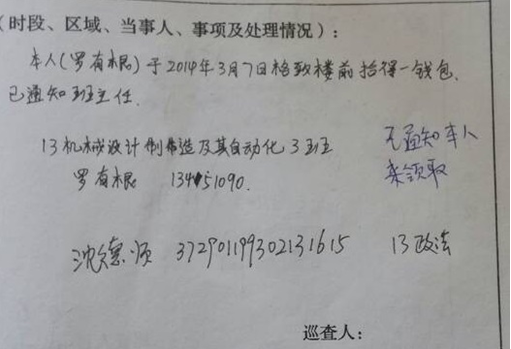 （时段、区域、当事人、事项及处理情况）：
本人(罗有根)于2014年3月7日格致楼前拾得一钱包、
已通知班主任.
13机械设计制造及其自动化3班
已通知本人
来领取
罗有根 134151090.
沈德顺 372901199302131615 13政法
巡查人：